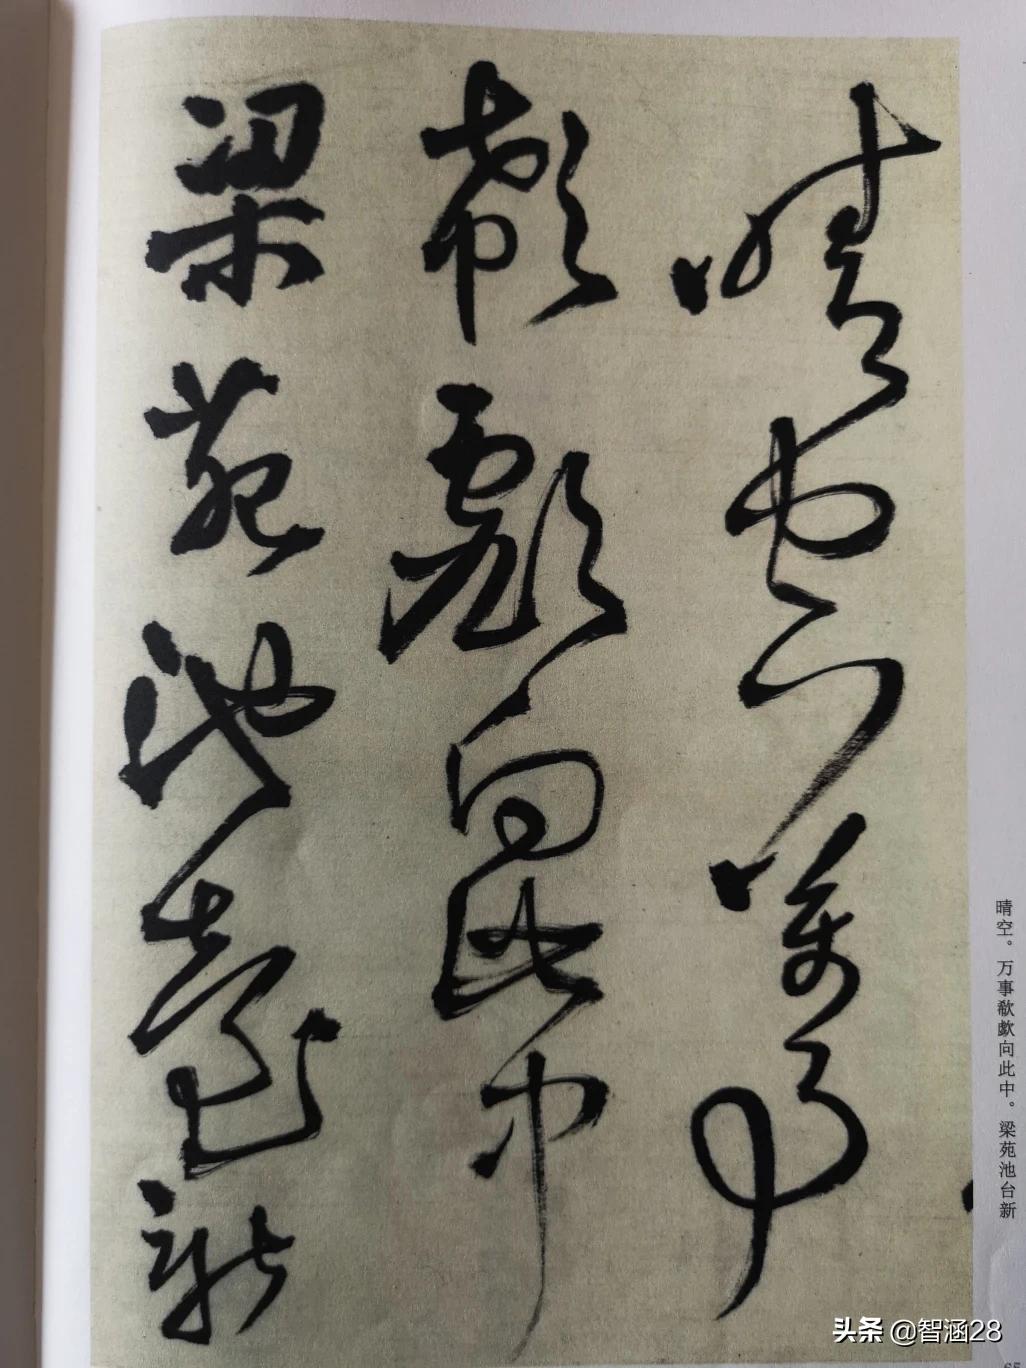 晴空萬事
欷歔向此中
梁苑池臺新
晴空。万事欷歔向此中。梁苑池台新
头条 @智涵28